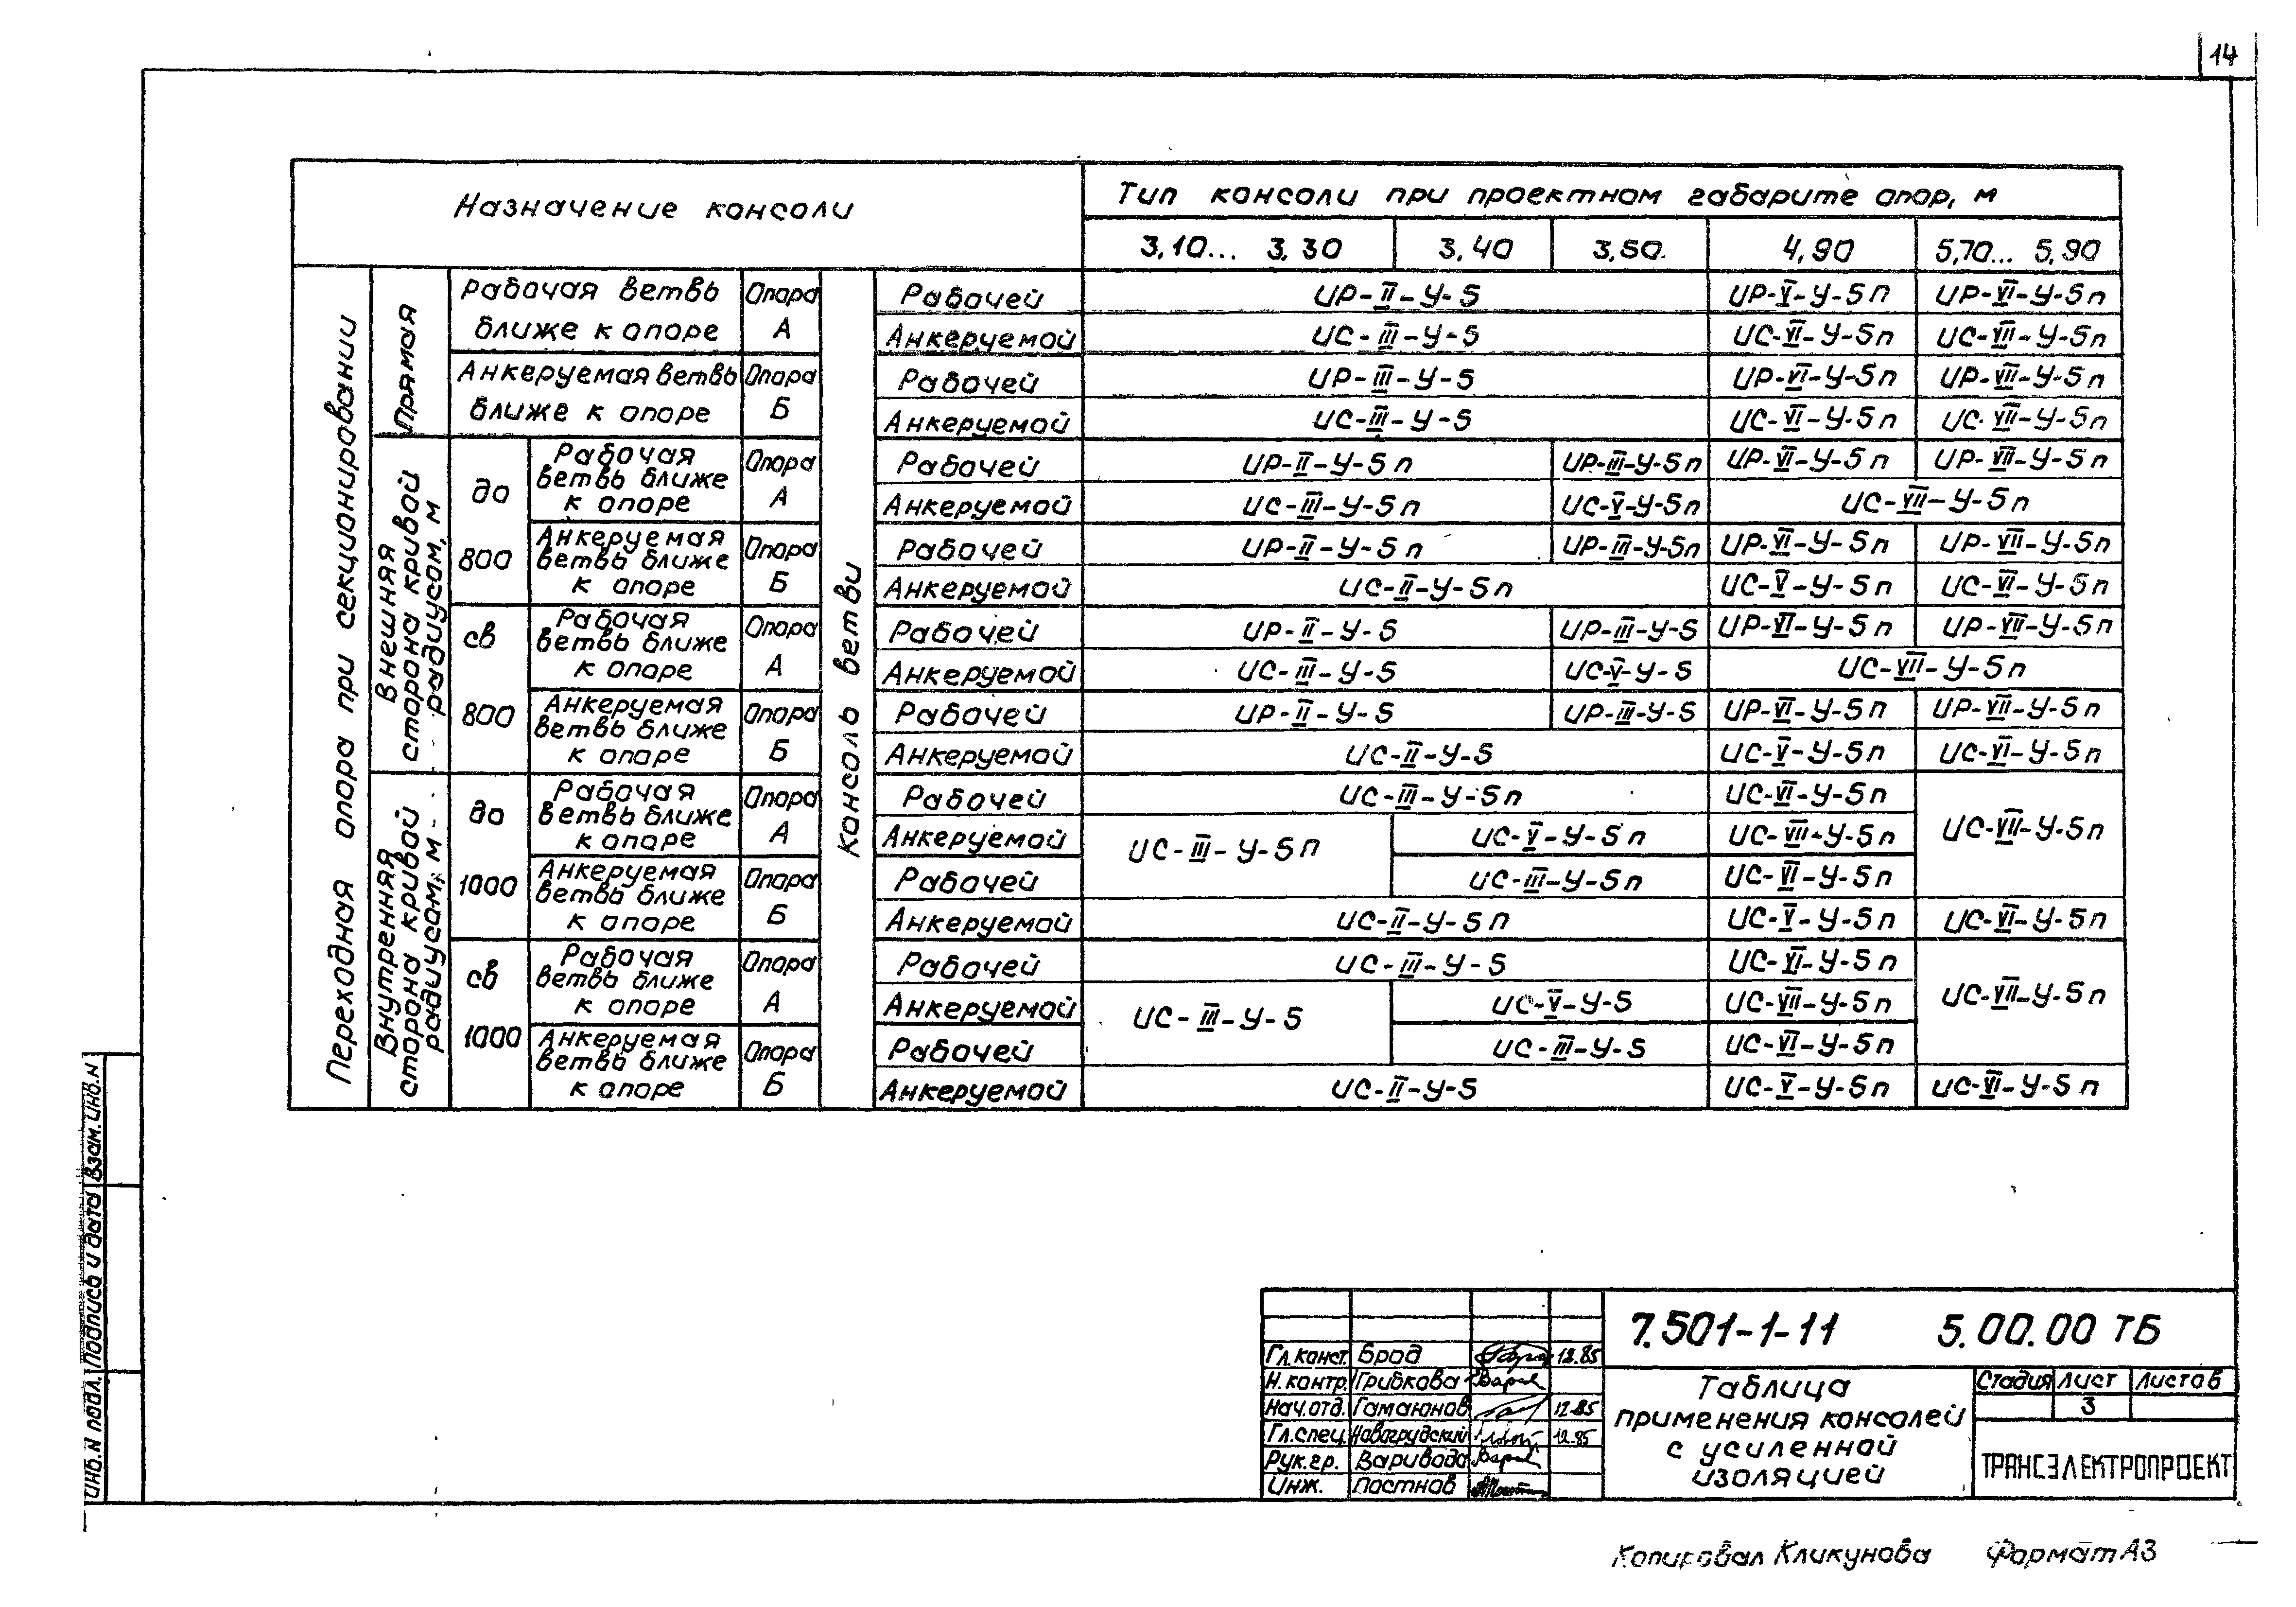 14
Назначение консоли
Тип консоли при проектном габарите опор, м
3,10... 3,30 3,40 3,50. 4,90 5,70... 5,90
Переходная опора при секционировании
Прямая
Внешняя сторона кривой радиусом, м
Внутренняя сторона кривой радиусом, м
Консоль ветви
Рабочая ветвь ближе к опоре Опора А
Рабочей ИР-II-У-5 ИР-V-У-5п ИР-VI-У-5п
Анкеруемой ИС-III-У-5 ИС-VI-У-5п ИС-VII-У-5п
Анкеруемая ветвь ближе к опоре Опора Б
Рабочей ИР-III-У-5 ИР-VI-У-5п ИР-VII-У-5п
Анкеруемой ИС-III-У-5 ИС-VI-У-5п ИС-VII-У-5п
до 800
Рабочая ветвь ближе к опоре Опора А
Рабочей ИР-II-У-5п ИР-III-У-5п ИР-VI-У-5п ИР-VII-У-5п
Анкеруемой ИС-III-У-5п ИС-V-У-5п ИС-VII-У-5п
Анкеруемая ветвь ближе к опоре Опора Б
Рабочей ИР-II-У-5п ИР-III-У-5п ИР-VI-У-5п ИР-VII-У-5п
Анкеруемой ИС-II-У-5п ИС-V-У-5п ИС-VI-У-5п
св 800
Рабочая ветвь ближе к опоре Опора А
Рабочей ИР-II-У-5 ИР-III-У-5 ИР-VI-У-5п ИР-VII-У-5п
Анкеруемой ИС-III-У-5 ИС-V-У-5 ИС-VII-У-5п
Анкеруемая ветвь ближе к опоре Опора Б
Рабочей ИР-II-У-5 ИР-III-У-5 ИР-VI-У-5п ИР-VII-У-5п
Анкеруемой ИС-II-У-5 ИС-V-У-5п ИС-VI-У-5п
до 1000
Рабочая ветвь ближе к опоре Опора А
Рабочей ИС-III-У-5п ИС-VI-У-5п ИС-VII-У-5п
Анкеруемой ИС-III-У-5п ИС-V-У-5п ИС-VII-У-5п
Анкеруемая ветвь ближе к опоре Опора Б
Рабочей ИС-III-У-5п ИС-VI-У-5п
Анкеруемой ИС-II-У-5п ИС-V-У-5п ИС-VI-У-5п
св 1000
Рабочая ветвь ближе к опоре Опора А
Рабочей ИС-III-У-5 ИС-VI-У-5п ИС-VII-У-5п
Анкеруемой ИС-III-У-5 ИС-V-У-5 ИС-VII-У-5п
Анкеруемая ветвь ближе к опоре Опора Б
Рабочей ИС-III-У-5 ИС-VI-У-5п
Анкеруемой ИС-II-У-5 ИС-V-У-5п ИС-VI-У-5п
Взам. инв. N
Подпись и дата
Инв. N подл.
7.501-1-11 5.00.00 ТБ
Гл. конст. Брод 12.85
Н. контр. Грибкова
Нач. отд. Гамаюнов 12.85
Гл. спец. Новогрудский 12.85
Рук. гр. Варивода
Инж. Постнов
Таблица
применения консолей
с усиленной
изоляцией
Стадия Лист Листов
3
ТРАНСЭЛЕКТРОПРОЕКТ
Копировал Кликунова Формат А3